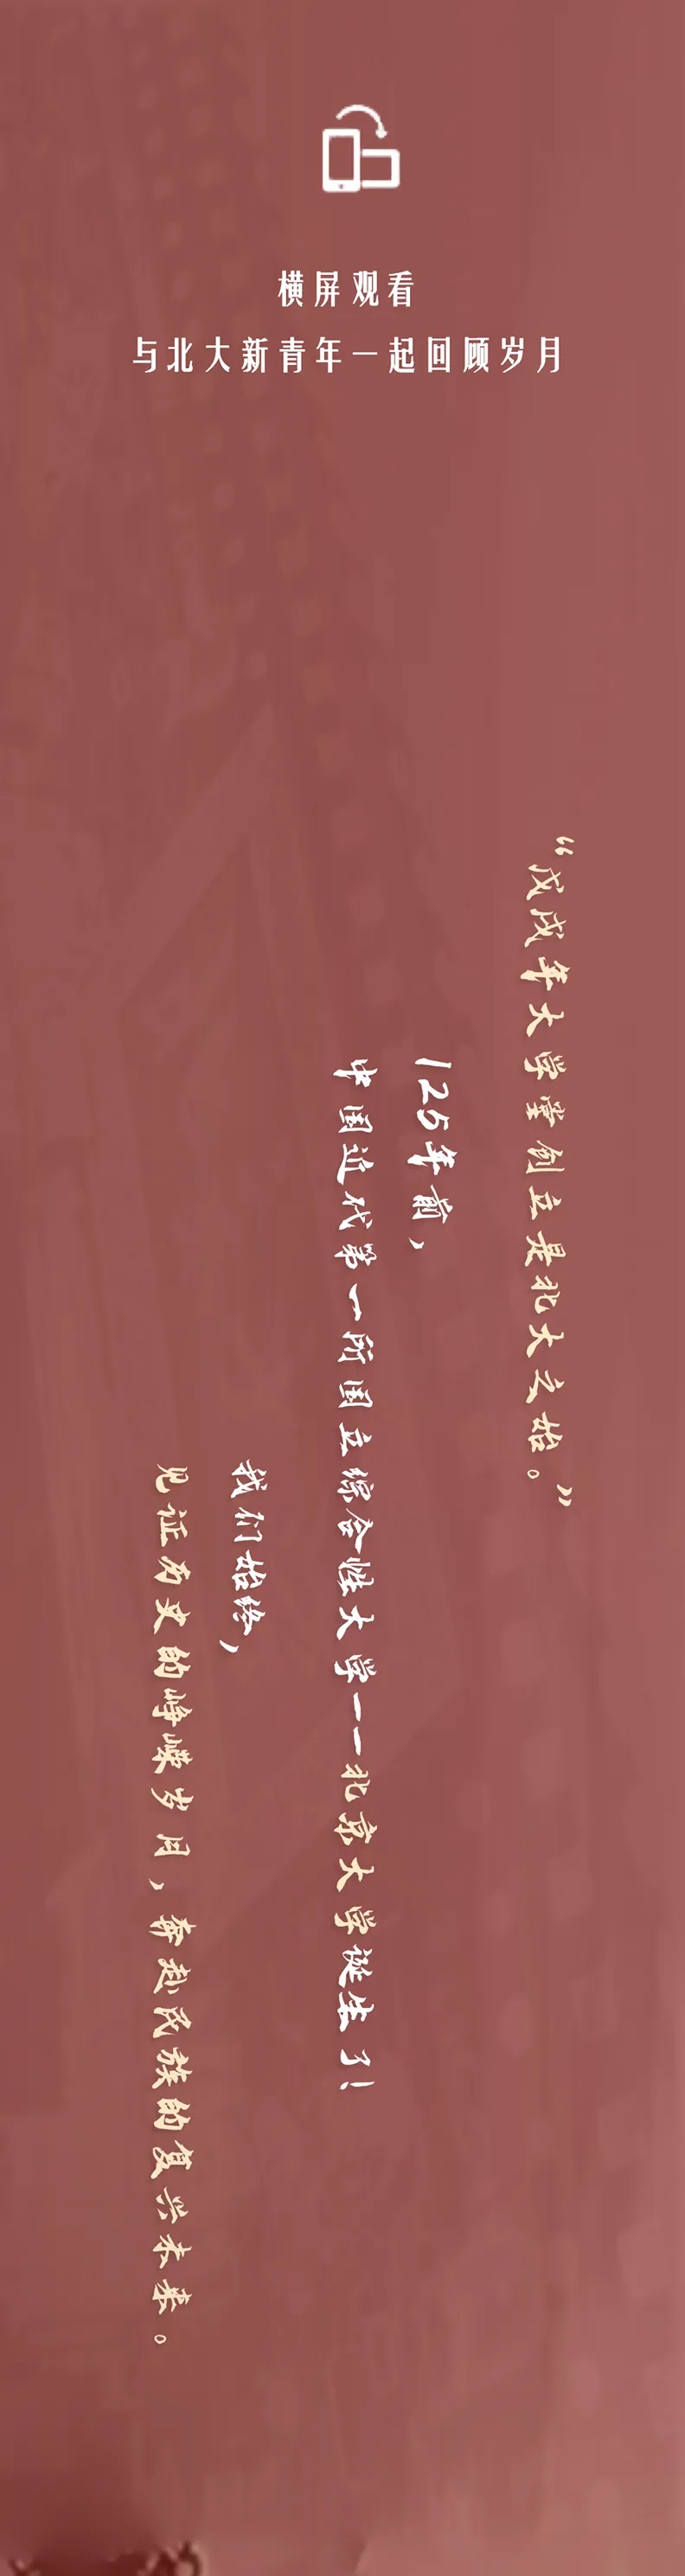 横屏观看
与北大新青年一起回顾岁月
“戊戌年大学堂创立是北大之始。”
125年前，
中国近代第一所国立综合性大学——北京大学诞生了！
我们始终，
见证历史的峥嵘岁月，奔赴民族的复兴未来。